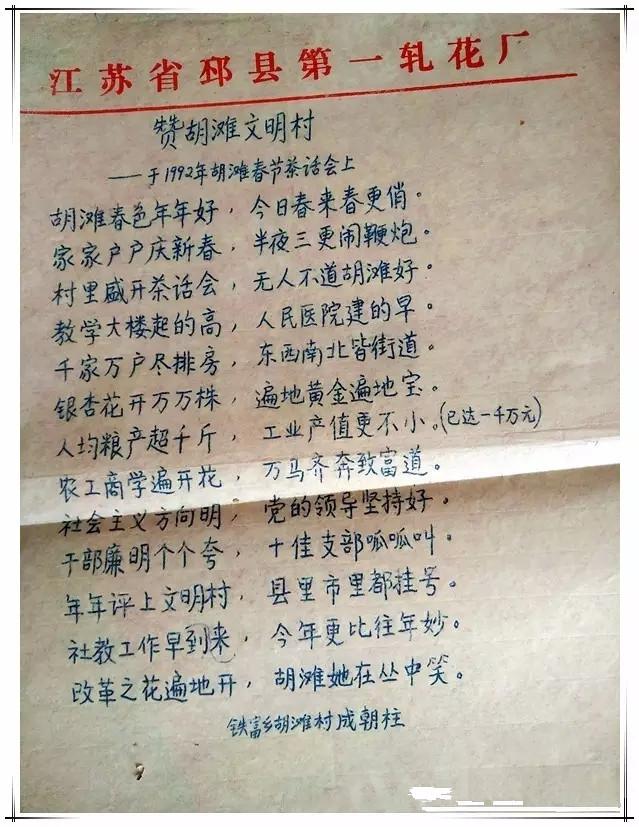 江苏省邳县第一轧花厂
赞胡滩文明村
——于1992年胡滩春节茶话会上
胡滩春色年年好，今日春来春更俏。
家家户户庆新春，半夜三更闹鞭炮。
村里盛开茶话会，无人不道胡滩好。
教学大楼起的高，人民医院建的早。
千家万户尽排房，东西南北皆街道。
银杏花开万万株，遍地黄金遍地宝。
人均粮产超千斤，工业产值更不小。(已达一千万元)
农工商学遍开花，万马齐奔致富道。
社会主义方向明，党的领导坚持好。
干部廉明个个夸，十佳支部呱呱叫。
年年评上文明村，县里市里都挂号。
社教工作早到来，今年更比往年妙。
改革之花遍地开，胡滩她在丛中笑。
铁富乡胡滩村成朝柱